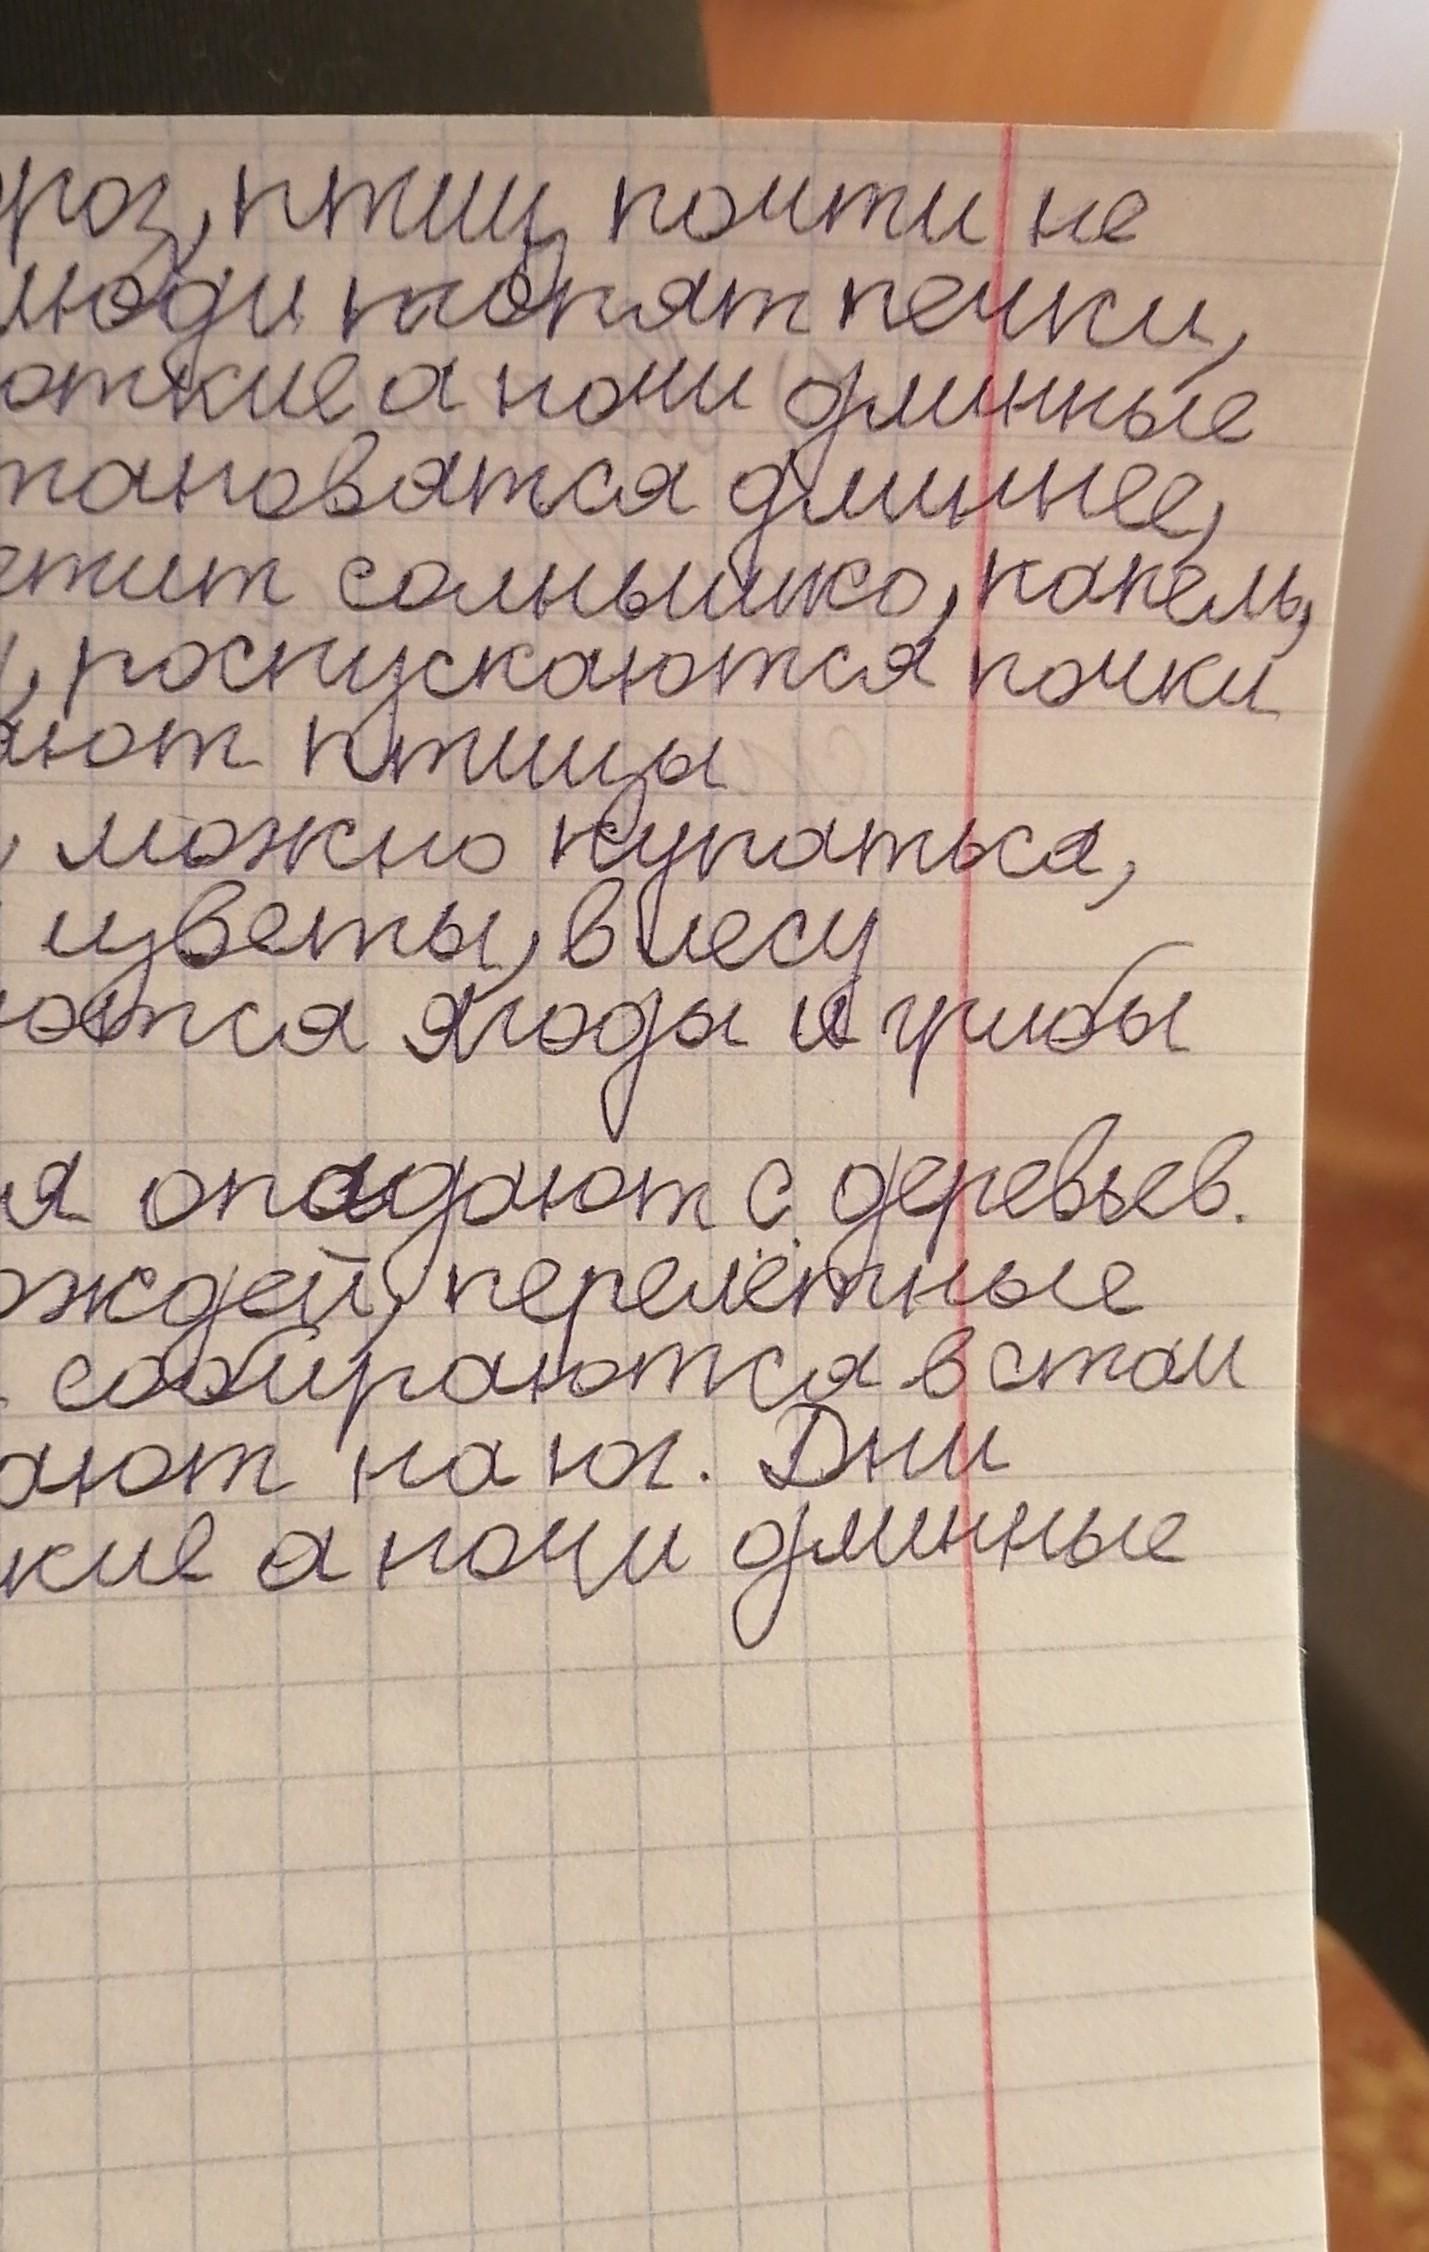 роз, птиц почти не
люди топят печки,
откие а ночи длинные
тановятся длиннее,
етит солнышко, капель,
, роспускаются почки
ают птицы
, можно купаться,
цветы, в лесу
ются ягоды и грибы
я опадают с деревьев.
ождей, перелётные
собираются в стаи
ают на юг. Дни
кие а ночи длинные